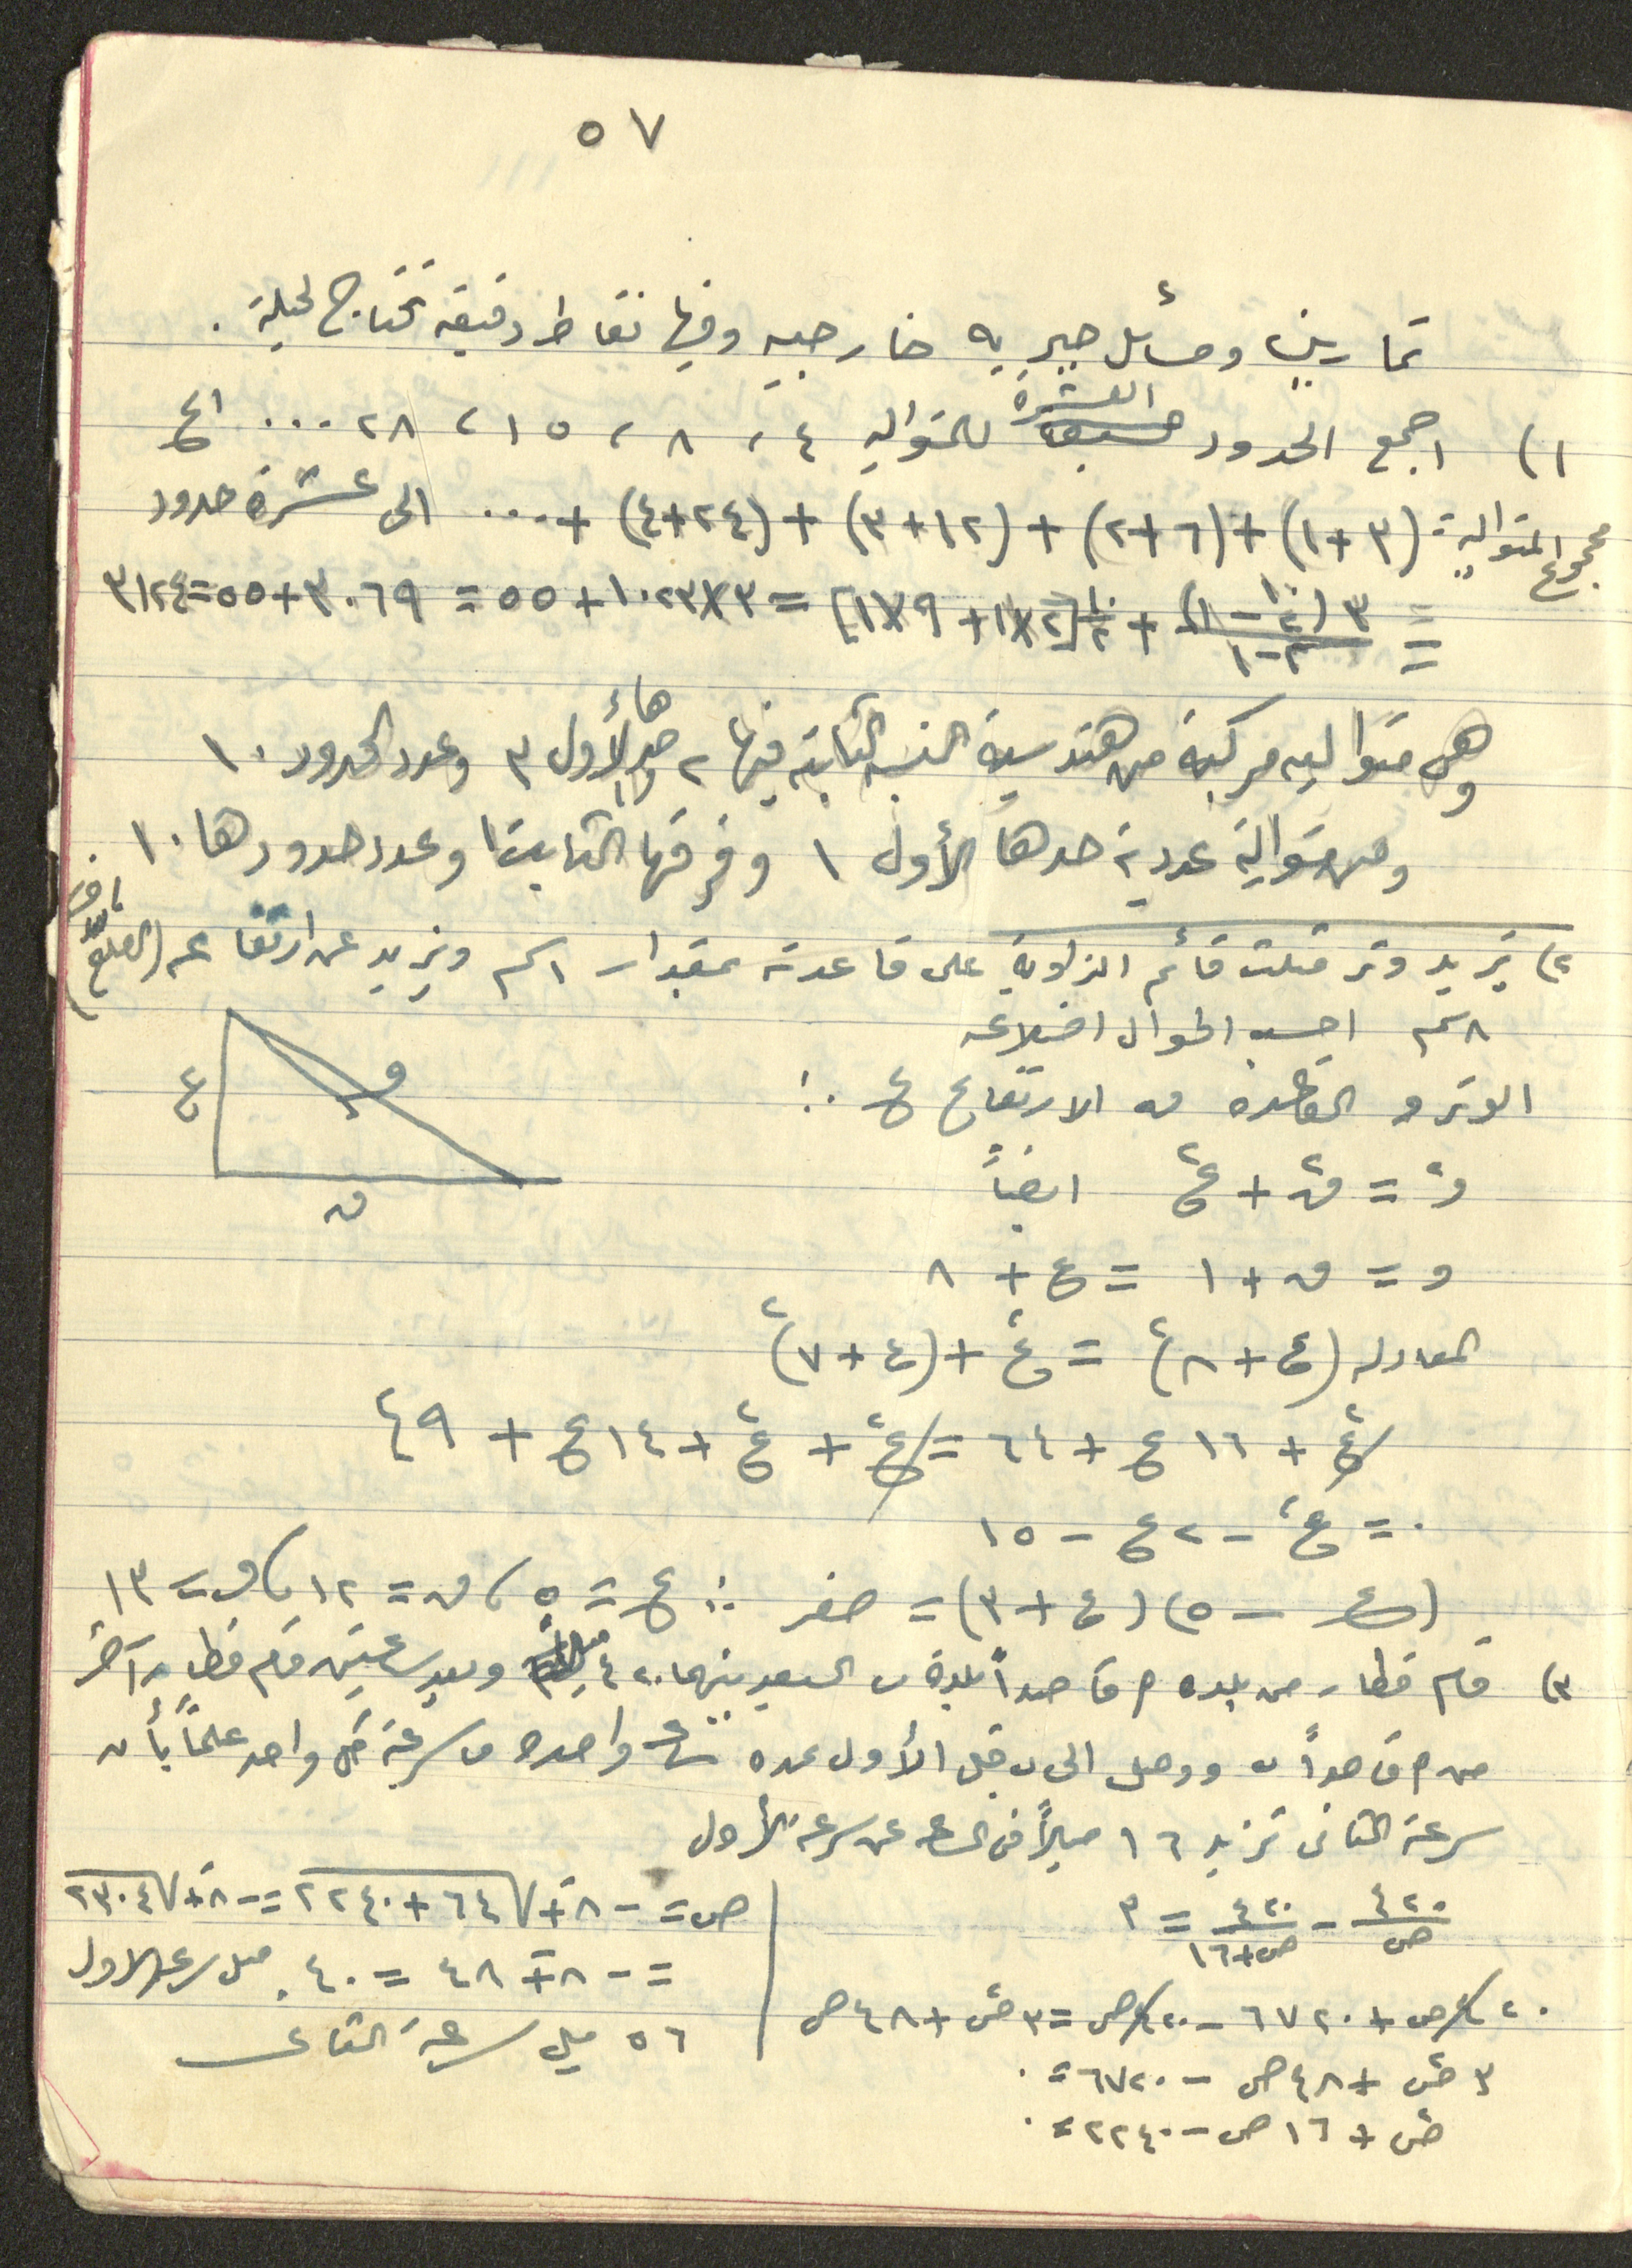 ٥٧
تمارين ومسائل جبريه خارجيه وفيها نقاط دقيقه تحتاج لحيلة .
١) اجمع الحدود العشرة للمتوالية ٤ ، ٨ ، ١٥ ، ٢٨ ... الخ
مجموع المتوالية = (٣ + ١) + (٦ + ٢) + (١٢ + ٣) + (٢٤ + ٤) + ... الى عشرة حدود
= ٣(٢^١٠ − ١)/(٢ − ١) + ١٠/٢ [٢×١ + ٩×١] = ٣×١٠٢٣ + ٥٥ = ٣٠٦٩ + ٥٥ = ٣١٢٤
وهي متواليه مركبة من هندسية النسبه الثابته فيها ٢ حدها الأول ٣ وعدد الحدود ١٠
ومن متوالية عددية حدها الأول ١ وفرقها الثابت ١ وعدد حدودها ١٠ .
٢) يزيد وتر مثلث قائم الزاوية على قاعدته بمقدار ١سم ويزيد عن ارتفاعه (الضلع
٨سم احسب اطوال اضلاعه
الوتر و القاعدة ق الارتفاع ع ∴
و٢ = ق٢ + ع٢ ايضاً
و = ق + ١ = ع + ٨
المعادله (ع + ٨)٢ = ع٢ + (ع + ٧)٢
ع٢ + ١٦ ع + ٦٤ = ع٢ + ع٢ + ١٤ ع + ٤٩
٠ = ع٢ − ٢ ع − ١٥
(ع − ٥) (ع + ٣) = صفر ∴ ع = ٥ ، ق = ١٢ ، و = ١٣
ع
و
ق
٣) قام قطار من بلده م قاصداً بلدة ب البعد بينهما ٤٢٠ ميلاً وبعد ساعتين قام قطار آخر
من م قاصداً ب ووصل الى ب قبل الأول بمده ساعة واحده ما سرعة كل واحد علماً بأن
سرعة الثاني تزيد ١٦ ميلاً في الساعه عن سرعة الأول
٤٢٠/س − ٤٢٠/(س+١٦) = ٣
٤٢٠س + ٦٧٢٠ − ٤٢٠س = ٣س٢ + ٤٨س
٣س٢ + ٤٨س − ٦٧٢٠ = ٠
س٢ + ١٦س − ٢٢٤٠ = ٠
س = −٨ ± √(٦٤ + ٢٢٤٠) = −٨ ± √٢٣٠٤
= −٨ ± ٤٨ = ٤٠ ميل سرعة الاول
٥٦ ميل سرعة الثاني